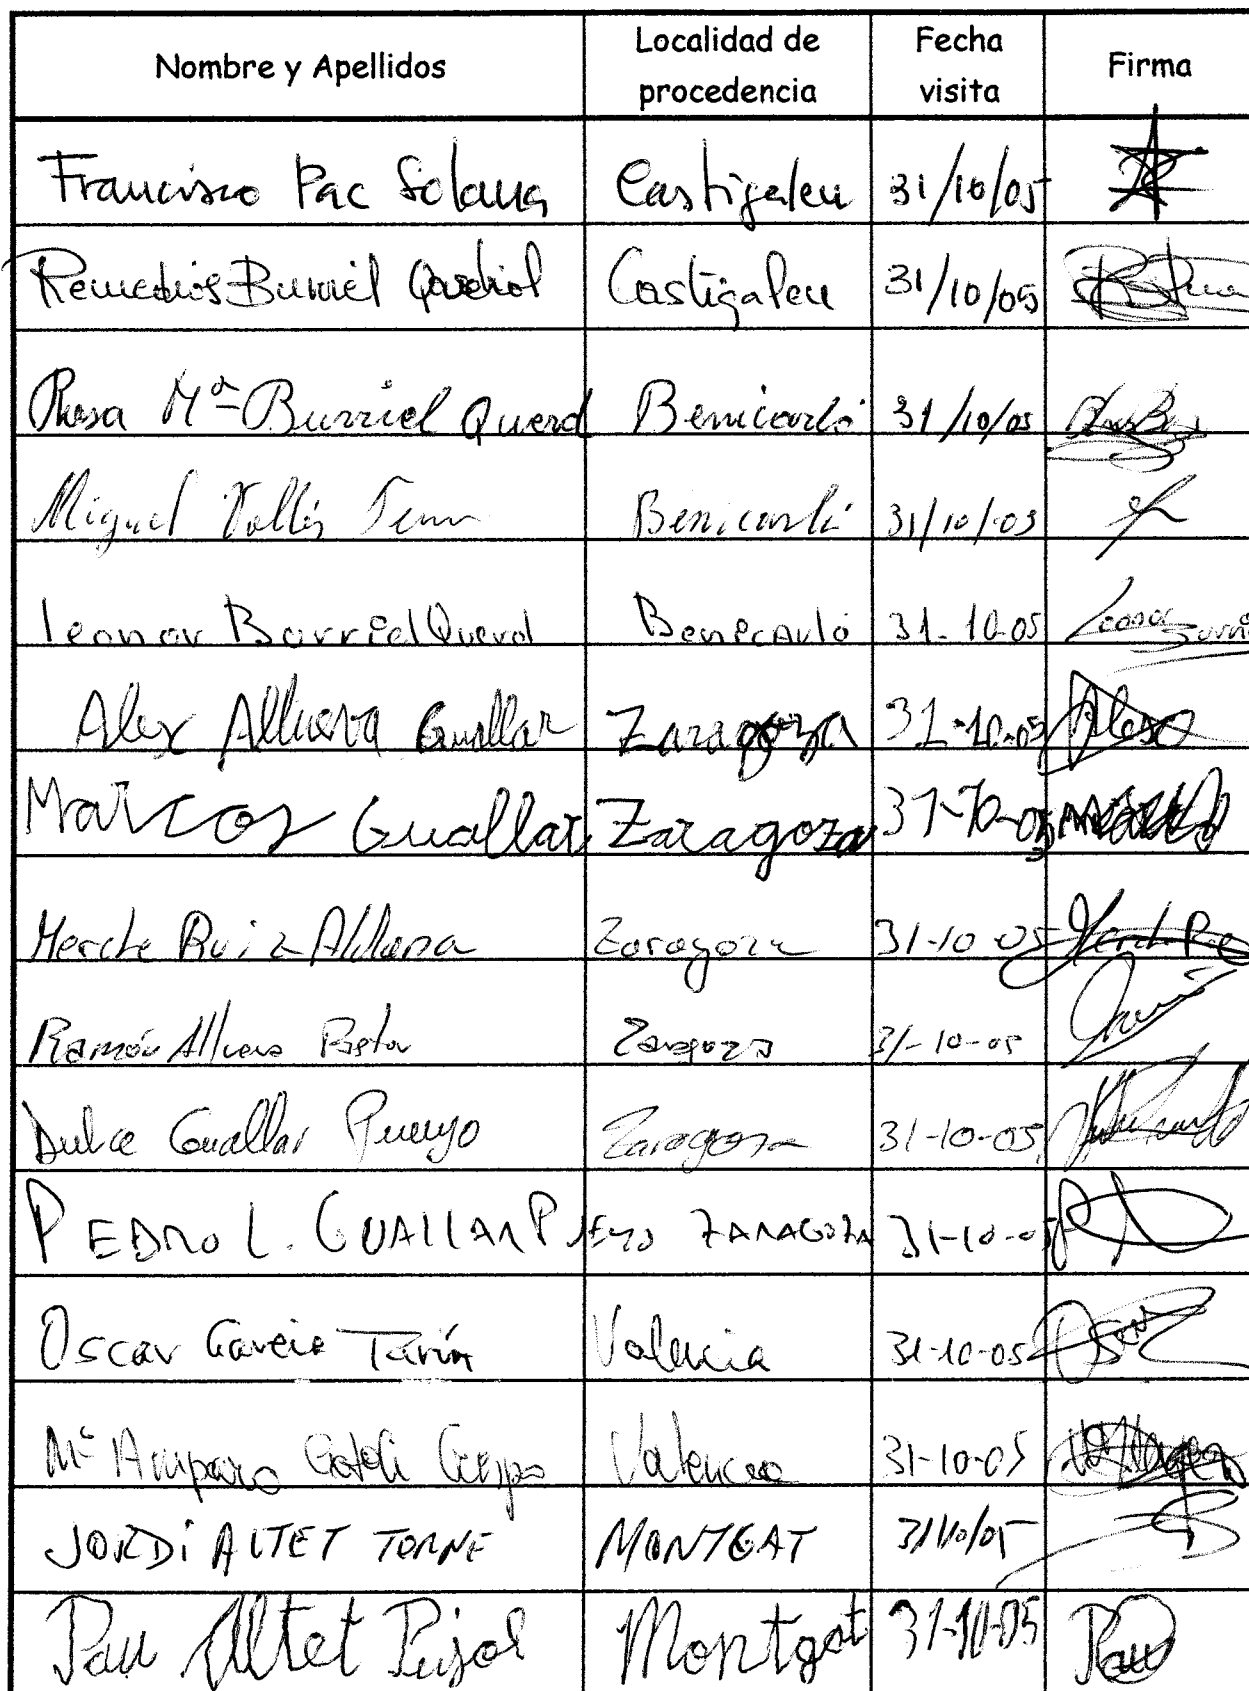 Nombre y Apellidos Localidad de procedencia Fecha visita Firma
Francisco Pac Solana Castigaleu 31/10/05
Remedios Burriel Castigaleu 31/10/05
Rosa Mª Burriel Querol Benicarló 31/10/05
Miguel Vallés Benicarló 31/10/05
Leonor Burriel Querol Benicarló 31-10-05 Leonor Burriel
Alex Allueva Guallar Zaragoza 31-10-05 Alex
Marcos Guallar Zaragoza 31-10-05
Merche Ruiz Aldana Zaragoza 31-10-05
Ramón Allueva Zaragoza 31-10-05
Dulce Guallar Pueyo Zaragoza 31-10-05
PEDRO L. GUALLAR PUEYO ZARAGOZA 31-10-05
Oscar Garcia Tarín Valencia 31-10-05
Mª Amparo Crespo Valencia 31-10-05
JORDi ALTET TORNE MONTGAT 31/10/05
Pau Altet Pujol Montgat 31-10-05 Pau